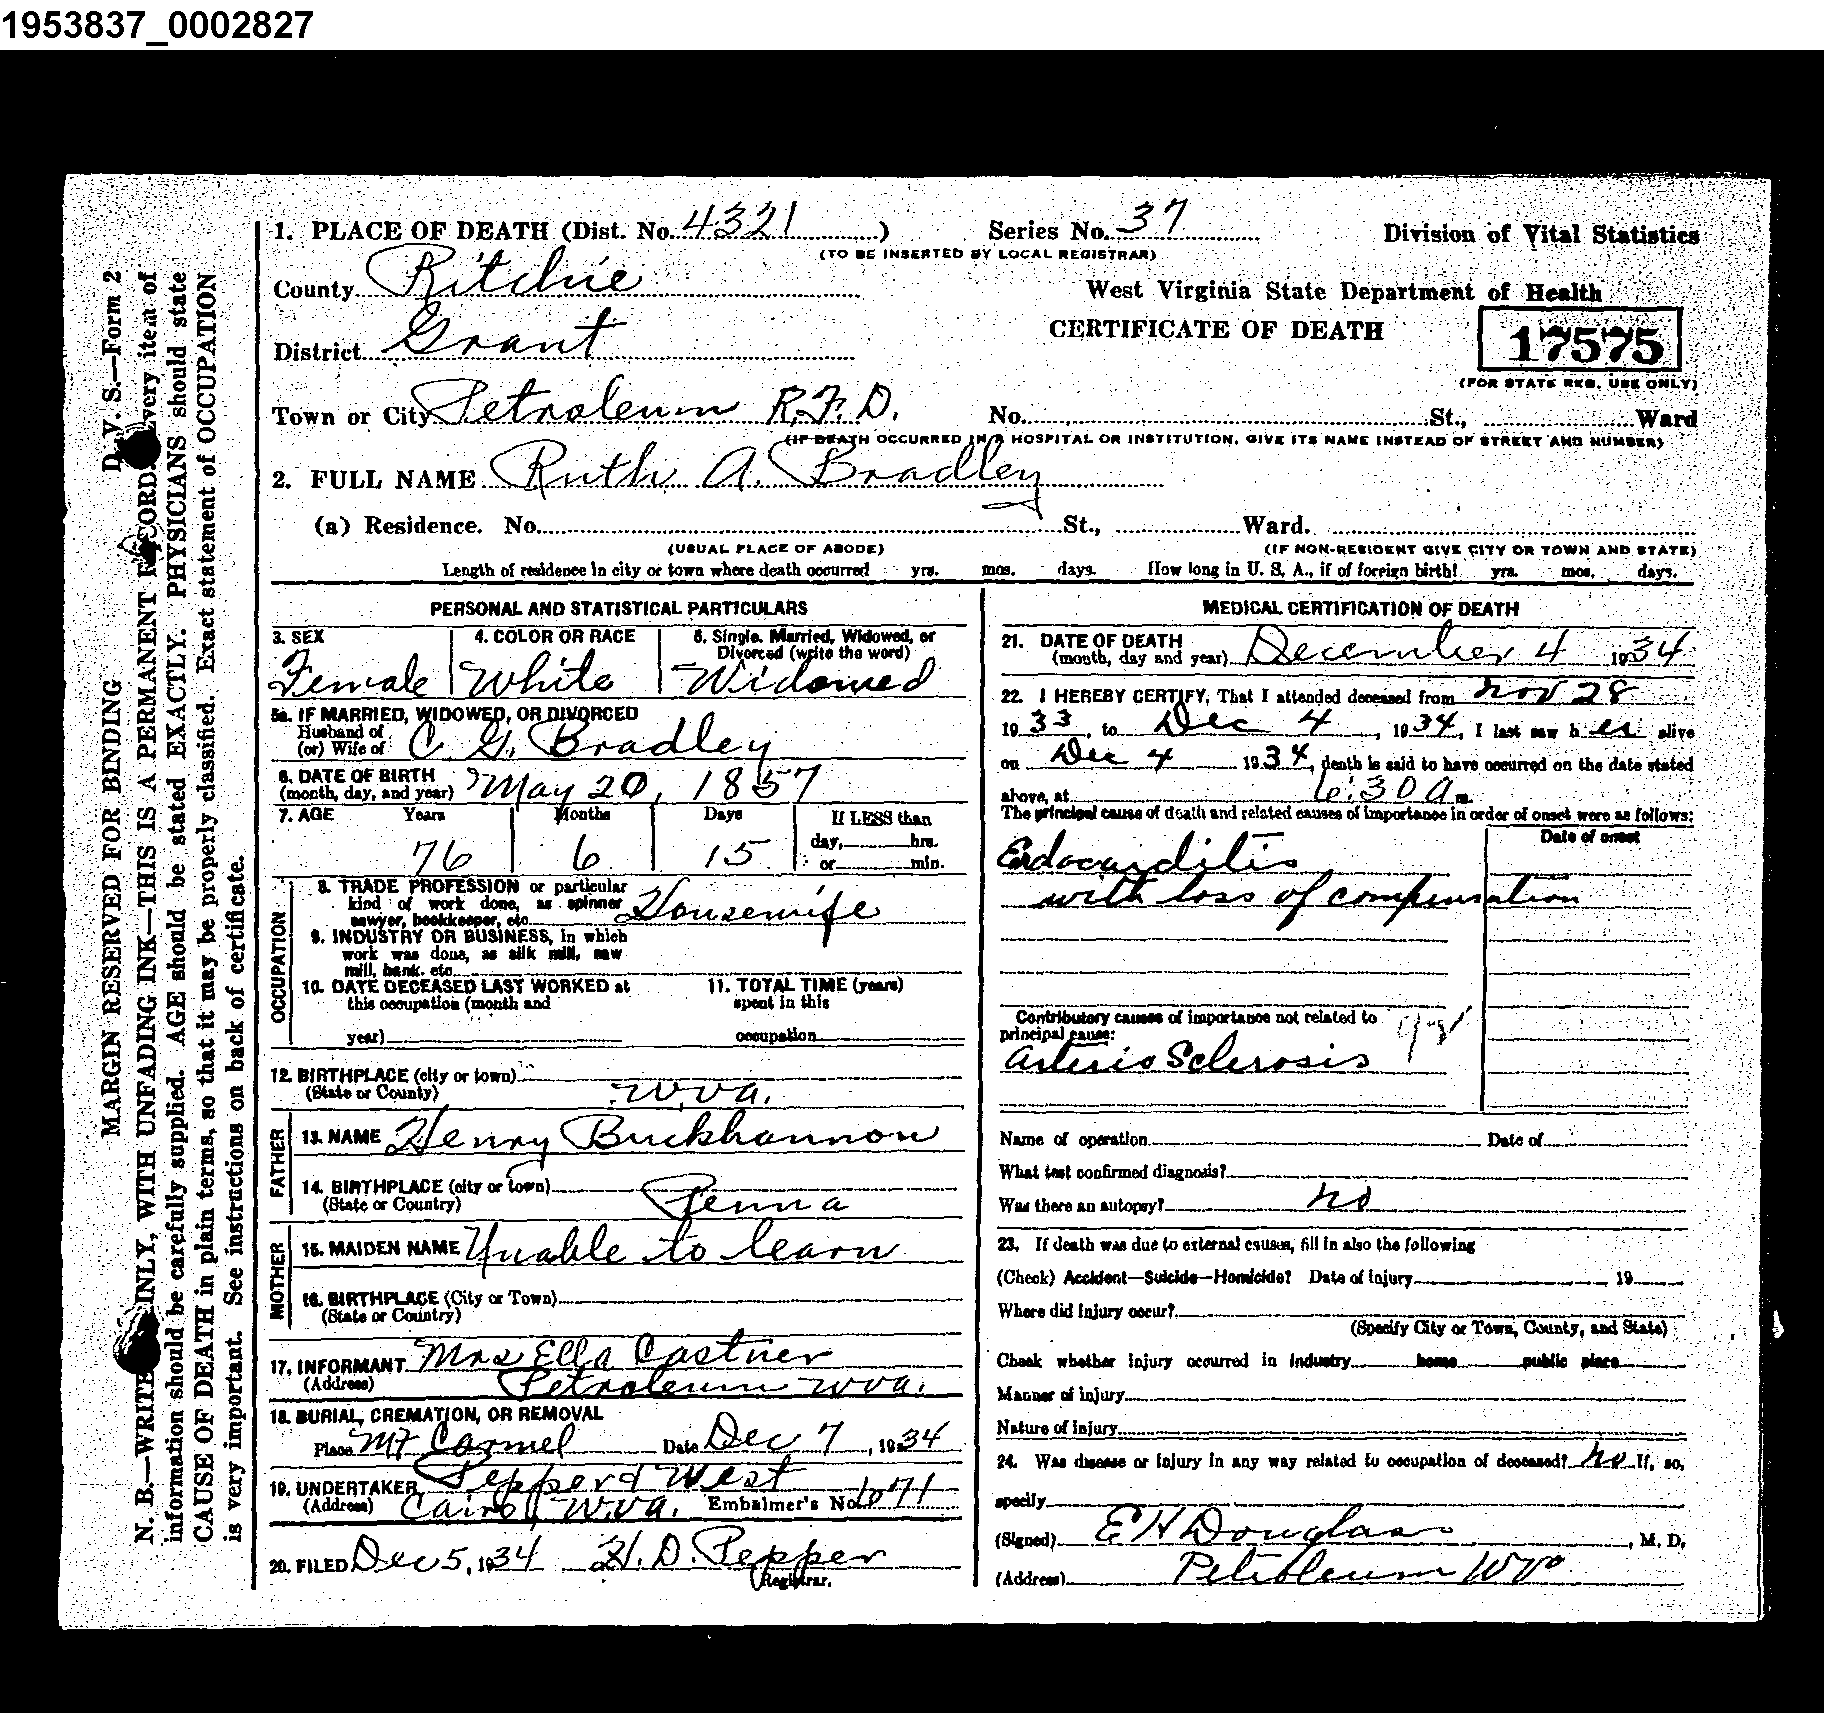 1953837_0002827
1. PLACE OF DEATH (Dist. No. 4321 ) Series No. 37 Division of Vital Statistics
(TO BE INSERTED BY LOCAL REGISTRAR)
County Ritchie West Virginia State Department of Health
District Grant CERTIFICATE OF DEATH 17575
(FOR STATE REG. USE ONLY)
Town or City Petroleum R.F.D. No. St., Ward
(IF DEATH OCCURRED IN A HOSPITAL OR INSTITUTION, GIVE ITS NAME INSTEAD OF STREET AND NUMBER)
2. FULL NAME Ruth A. Bradley
(a) Residence. No. St., Ward.
(USUAL PLACE OF ABODE) (IF NON-RESIDENT GIVE CITY OR TOWN AND STATE)
Length of residence in city or town where death occurred yrs. mos. days. How long in U. S. A., if of foreign birth? yrs. mos. days.
PERSONAL AND STATISTICAL PARTICULARS
3. SEX 4. COLOR OR RACE 5. Single, Married, Widowed, or
Divorced (write the word)
Female White Widowed
5a. IF MARRIED, WIDOWED, OR DIVORCED
Husband of
(or) Wife of C. G. Bradley
6. DATE OF BIRTH
(month, day, and year) May 20, 1857
7. AGE Years Months Days If LESS than
day, hrs.
76 6 15 or min.
OCCUPATION
8. TRADE PROFESSION or particular
kind of work done, as spinner
sawyer, bookkeeper, etc. Housewife
9. INDUSTRY OR BUSINESS, in which
work was done, as silk mill, saw
mill, bank, etc.
10. DATE DECEASED LAST WORKED at 11. TOTAL TIME (years)
this occupation (month and spent in this
year) occupation
12. BIRTHPLACE (city or town)
(State or County) W.Va.
FATHER
13. NAME Henry Buckhannon
14. BIRTHPLACE (city or town)
(State or Country) Penna
MOTHER
15. MAIDEN NAME Unable to learn
16. BIRTHPLACE (City or Town)
(State or Country)
17. INFORMANT Mrs Ella Castner
(Address) Petroleum W.Va.
18. BURIAL, CREMATION, OR REMOVAL
Place Mt Carmel Date Dec 7, 1934
19. UNDERTAKER Pepper & West
(Address) Cairo, W.Va. Embalmer's No. 1071
20. FILED Dec 5, 1934 H. D. Pepper
Registrar.
MEDICAL CERTIFICATION OF DEATH
21. DATE OF DEATH
(month, day and year) December 4 1934
22. I HEREBY CERTIFY, That I attended deceased from Nov 28
1933, to Dec 4, 1934, I last saw her alive
on Dec 4 1934, death is said to have occurred on the date stated
above, at 6:30 a m.
The principal cause of death and related causes of importance in order of onset were as follows:
Date of onset
Endocarditis
with loss of compensation
Contributory causes of importance not related to
principal cause:
Arterio Sclerosis
Name of operation Date of
What test confirmed diagnosis?
Was there an autopsy? no
23. If death was due to external causes, fill in also the following
(Check) Accident—Suicide—Homicide? Date of injury 19
Where did injury occur?
(Specify City or Town, County, and State)
Check whether injury occurred in industry home public place
Manner of injury
Nature of injury
24. Was disease or injury in any way related to occupation of deceased? no If, so,
specify
(Signed) E H Douglass, M. D.
(Address) Petroleum W Va
D. V. S.—Form 2
MARGIN RESERVED FOR BINDING
N. B.—WRITE INLY, WITH UNFADING INK—THIS IS A PERMANENT RECORD. Every item of
information should be carefully supplied. AGE should be stated EXACTLY. PHYSICIANS should state
CAUSE OF DEATH in plain terms, so that it may be properly classified. Exact statement of OCCUPATION
is very important. See instructions on back of certificate.